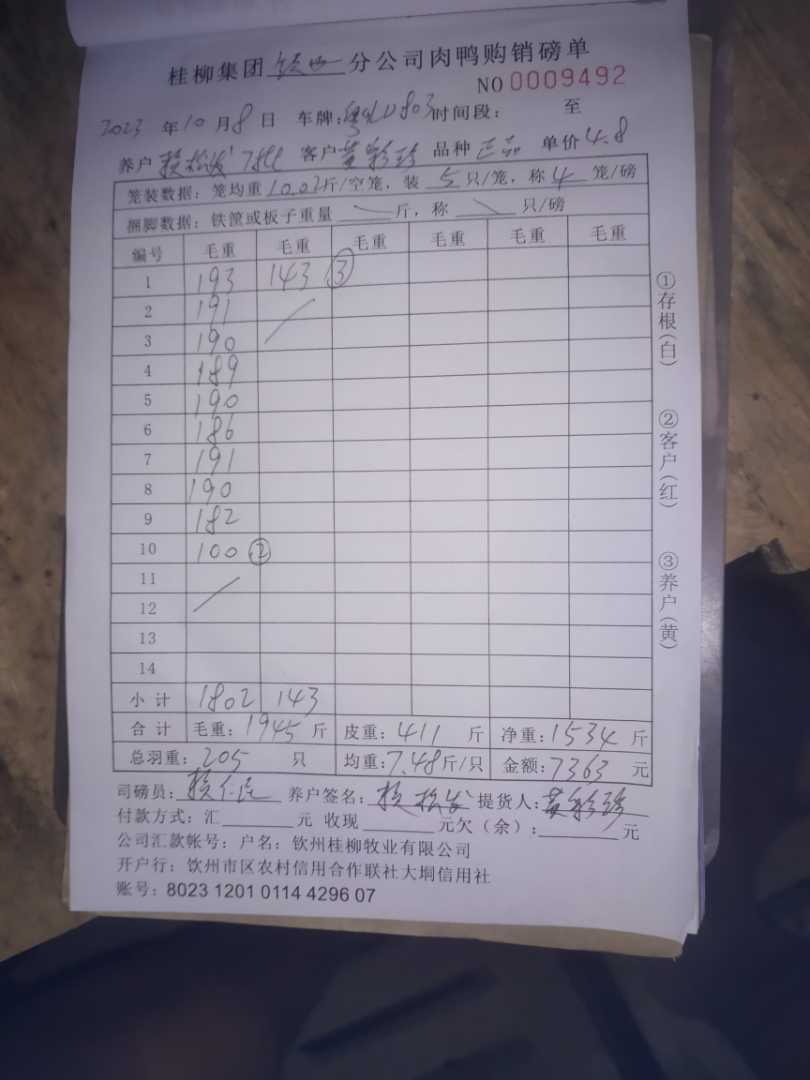 桂柳集团钦州分公司肉鸭购销磅单
NO 0009492
2023 年 10 月 8 日 车牌: 803 时间段: 至
养户 赖松发 客户 黄彩珍 品种 正品 单价 4.8
笼装数据: 笼均重 10.02 斤/空笼, 装 5 只/笼, 称 4 笼/磅
捆脚数据: 铁篮或板子重量 \ 斤, 称 \ 只/磅
编号 毛重 毛重 毛重 毛重 毛重 毛重
1 193 143 ③
2 191
3 190
4 189
5 190
6 186
7 191
8 190
9 182
10 100 ②
11
12
13
14
小计 1802 143
合计 毛重: 1945 斤 皮重: 411 斤 净重: 1534 斤
总羽重: 205 只 均重: 7.48 斤/只 金额: 7363 元
司磅员: 养户签名: 赖松发 提货人: 黄彩珍
付款方式: 汇 元 收现 元欠(余): 元
公司汇款帐号: 户名: 钦州桂柳牧业有限公司
开户行: 钦州市区农村信用合作联社大垌信用社
账号: 8023 1201 0114 4296 07
①存根(白)
②客户(红)
③养户(黄)